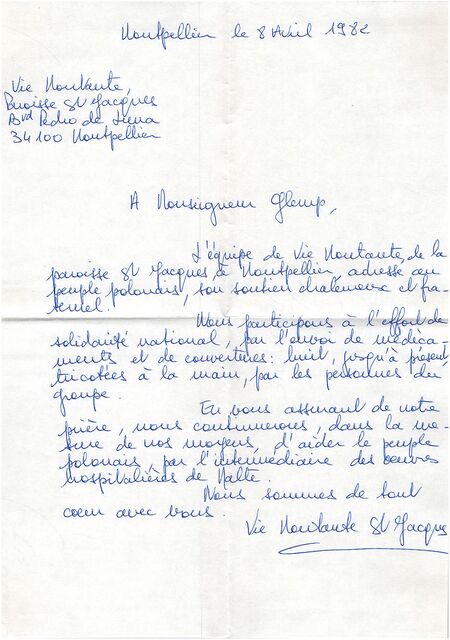 Montpellier le 8 Avril 1982
Vie Montante,
Paroisse St Jacques
Bvd Pedro de Luna
34100 Montpellier
A Monseigneur Glemp,
L'équipe de Vie Montante, de la
paroisse St Jacques à Montpellier, adresse au
peuple polonais, son soutien chaleureux et fra-
ternel.
Nous participons à l'effort de
solidarité national, par l'envoi de médica-
ments et de couvertures : huit, jusqu'à présent
tricotées à la main, par les personnes du
groupe.
En vous assurant de notre
prière, nous continuerons, dans la me-
sure de nos moyens, d'aider le peuple
polonais, par l'intermédiaire des oeuvres
hospitalières de Malte.
Nous sommes de tout
coeur avec vous.
Vie Montante St Jacques